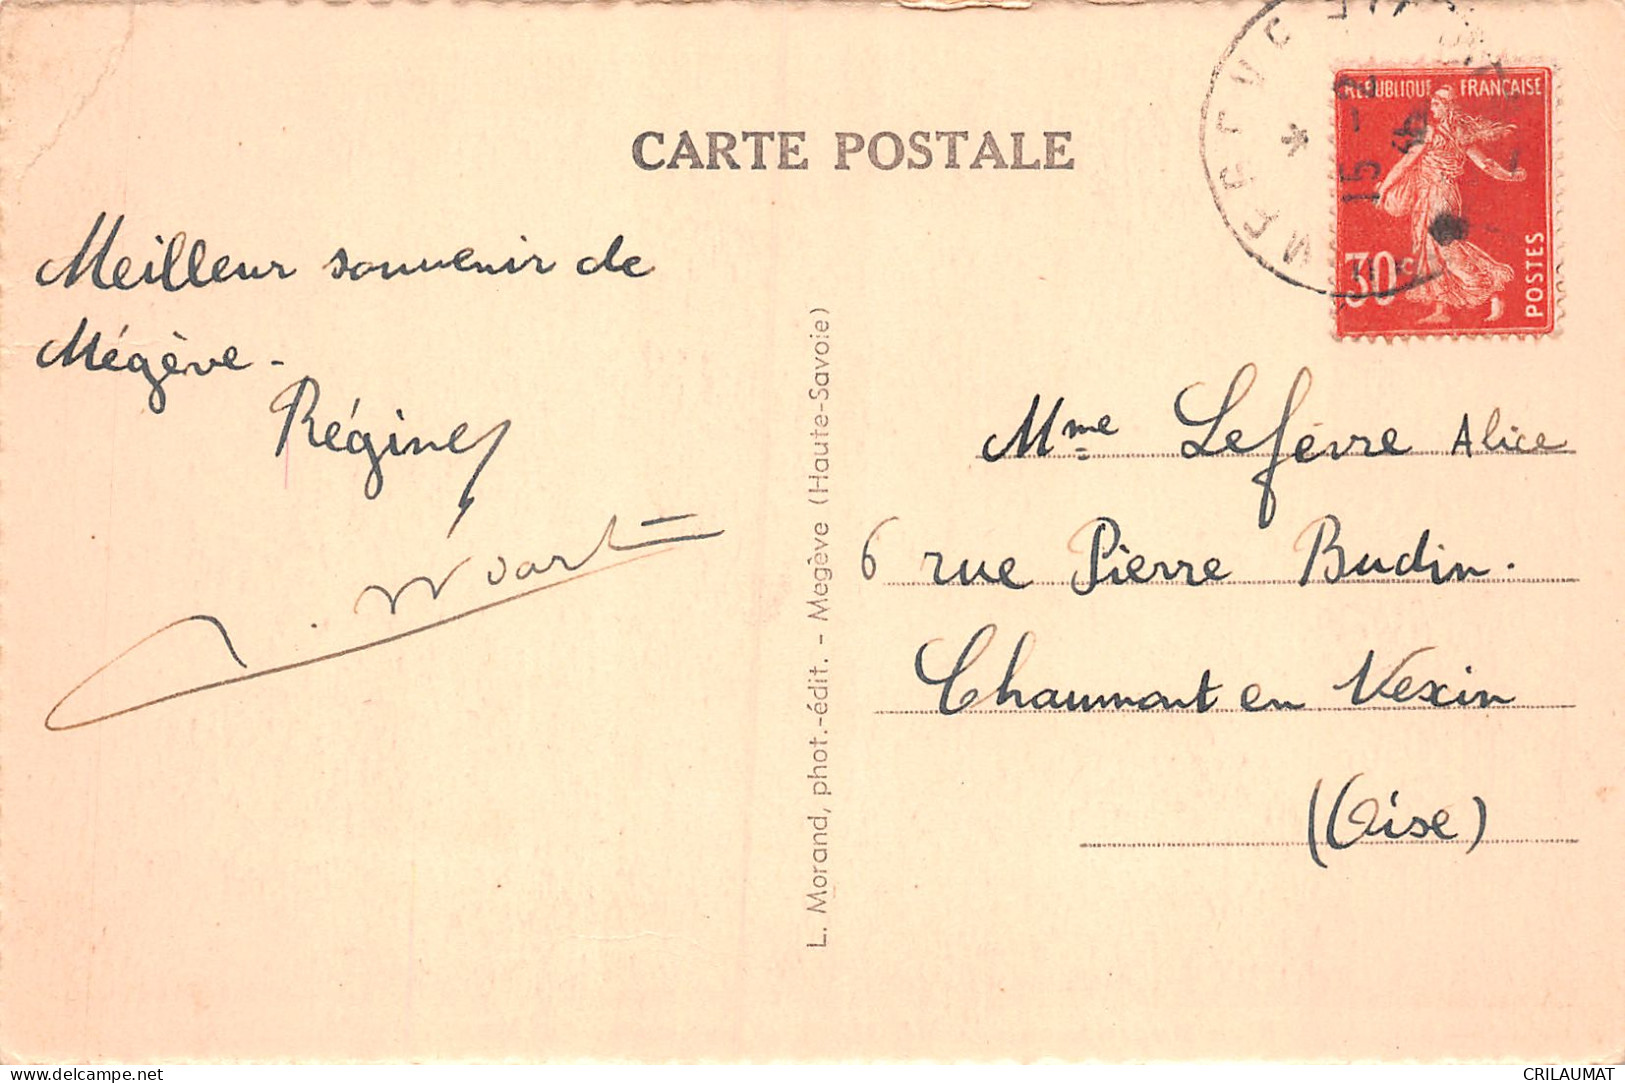 CARTE POSTALE
RÉPUBLIQUE FRANÇAISE
30c
POSTES
15
Meilleur souvenir de
Mégève -
Régine
L. Morand, phot.-édit. - Megève (Haute-Savoie)
Mme Lefèvre Alice
6 rue Pierre Budin.
Chaumont en Vexin
(Oise)
delcampe.net
CRILAUMAT